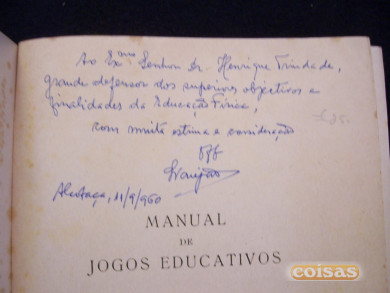 Ao Ex.mo Senhor Dr. Henrique Trindade,
grande defensor dos superiores objectivos e
finalidades da Educação Física,
com muita estima e consideração
Alcobaça, 11/9/960
MANUAL
DE
JOGOS EDUCATIVOS
coisas